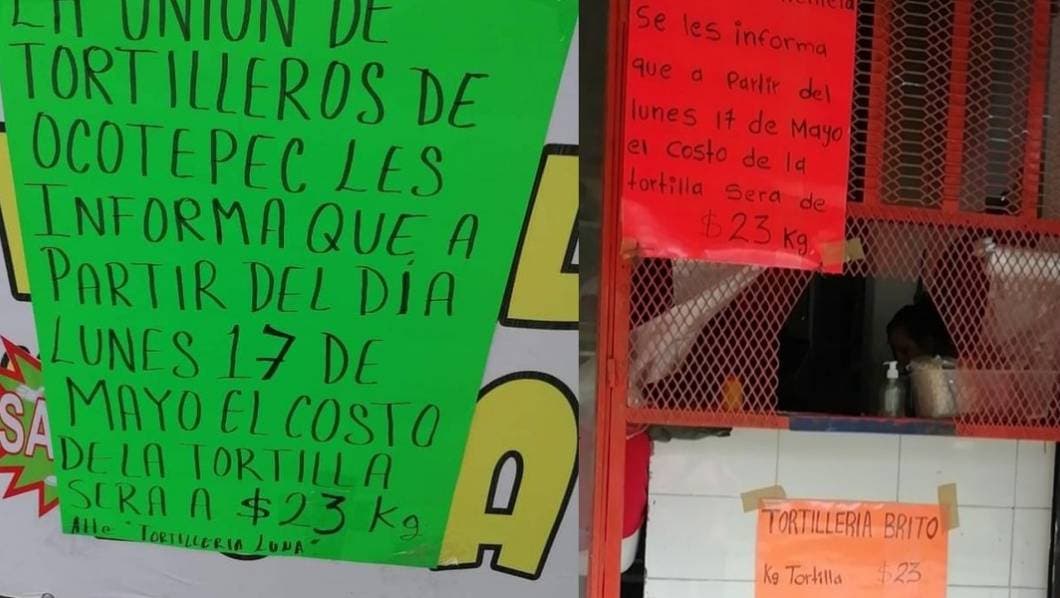 LA UNION DE
TORTILLEROS DE
OCOTEPEC LES
INFORMA QUE A
PARTIR DEL DÍA
LUNES 17 DE
MAYO EL COSTO
DE LA TORTILLA
SERA A $23 Kg
Atte "TORTILLERIA LUNA"
SA
A
Se les informa
que a Partir del
lunes 17 de Mayo
el costo de la
tortilla Sera de
$23 Kg.
TORTILLERIA BRITO
Kg Tortilla $23